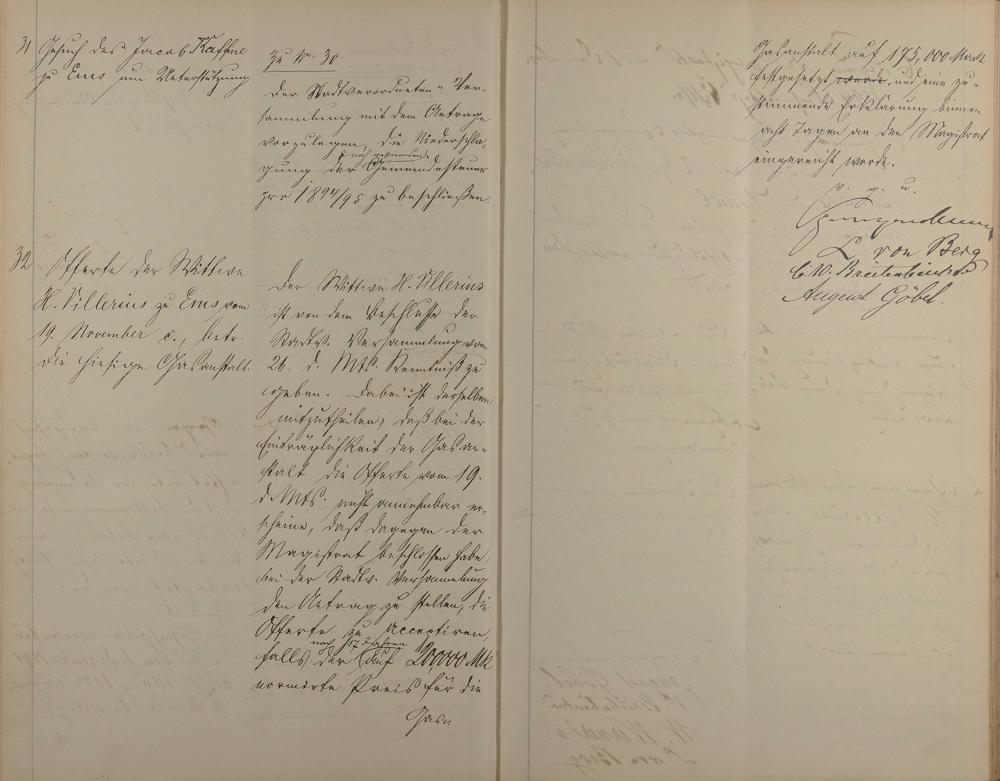 31 Gesuch des Jacob Kaffine
zu Ems um Unterstützung
Zu No. 30.
Der Stadtverordneten-Ver-
sammlung mit dem Antrage
vorzulegen, die Niederschla-
gung der Gemeindesteuer
pro 1894/95 zu beschließen.
32 Offerte der Wittwe
H. Villerius zu Ems vom
19. November c., betr.
die hiesige Gasanstalt.
Der Wittwe H. Villerius
ist von dem Beschlusse der
Stadtv. Versammlung vom
26. d. Mts. Kenntniß zu
geben. Dabei ist derselben
mitzutheilen, daß bei der
Einträglichkeit der Gasan-
stalt die Offerte vom 19.
d. Mts. nicht annehmbar er-
scheine, daß dagegen der
Magistrat beschlossen habe,
bei der Stadtv. Versammlung
den Antrag zu stellen, die
Offerte zu acceptiren,
falls der nach 17 Jahren auf 200000 Mk
normirte Preis für die
Gas-
Gasanstalt auf 175,000 Mark
festgesetzt werde, und eine zu-
stimmende Erklärung binnen
acht Tagen an den Magistrat
eingereicht werde.
v. g. u.
L von Berg
C. W. Breitenbücher
August Göbel.